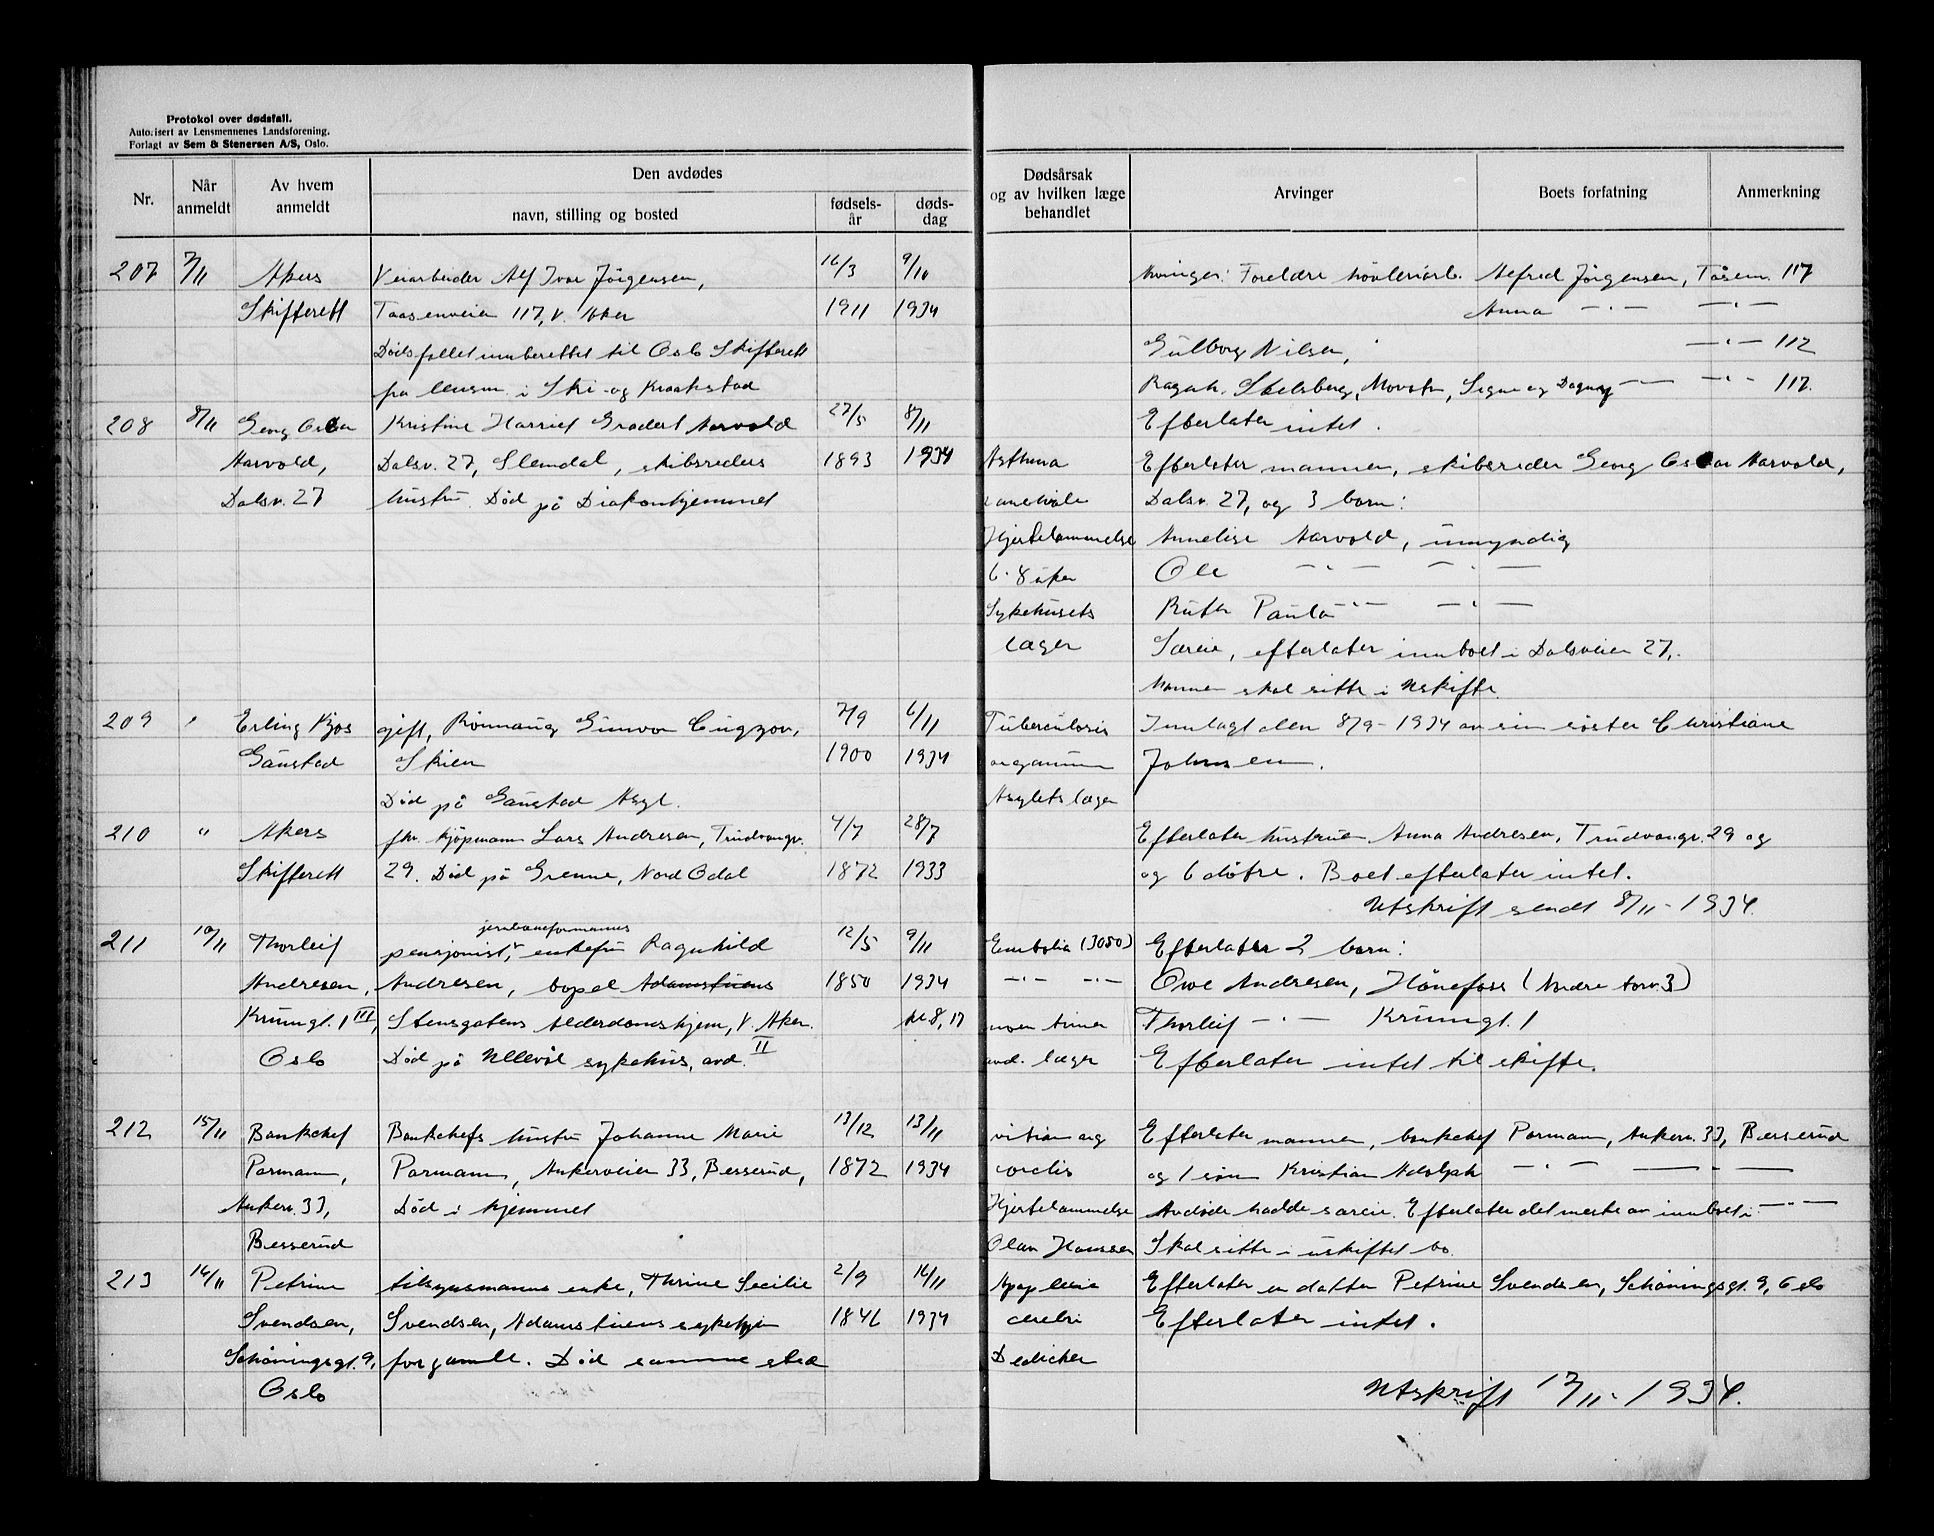 Protokol over dødsfall.
Autorisert av Lensmennenes Landsforening.
Forlagt av Sem & Stenersen A/S, Oslo.
Nr.
Når anmeldt
Av hvem anmeldt
Den avdødes
navn, stilling og bosted
fødsels-år
døds-dag
Dødsårsak og av hvilken læge behandlet
Arvinger
Boets forfatning
Anmerkning
207 7/11 Akers Veiarbeider Alf Ivar Jörgensen, 16/3 9/10 Arvinger: Foreldre Alfred Jörgensen, Tåsenv. 117
Skifterett Taasenveien 117, V. Aker 1911 1934 Anna -"- -"-
Dödsfallet innberettet til Oslo Skifterett Gulborg Nilsen, -"- 112
fra lensm. i Ski og Kraakstad Ragnh. Signe og Dagny -"- 117.
208 8/11 Georg Oscar Kristine Harriet Arvold 27/5 8/11 Efterlater intet.
Aarvold, Dalsv. 27, Slemdal, skibsreders 1893 1934 Asthma Efterlater mannen, skibsreder Georg Oscar Aarvold,
Dalsv. 27 hustru. Död på Diakonhjemmet Dalsv. 27, og 3 barn:
Hjertelammelse Annelise Aarvold, umyndig
6-8 uker Ole -"- -"-
Sykehusets Ruth Paula -"- -"-
læger Særeie, efterlater innboet i Dalsveien 27,.
Mannen skal sitte i uskifte.
209 " Erling Kjos gift, Rönnaug Gunvor 7/9 6/11 Tuberculosis Innlagt den 8/9-1934 av sin söster Christiane
Gaustad Skien 1900 1934 Johnsen.
Död på Gaustad Asyl. Asylets læger
210 " Akers fhv. kjöpmann Lars Andresen, Trudvangv. 4/7 28/7 Efterlater hustruen Anna Andresen, Trudvangv. 29 og
Skifterett 29. Död på Grenne, Nord Odal 1872 1933 og 6 dötre. Boet efterlater intet.
Utskrift sendt 8/11-1934.
jernbaneformanns
211 10/11 Thorleif pensjonist, enkefru Ragnhild 12/5 9/11 Embolia (3050) Efterlater 2 barn:
Andresen, Andresen, bopel Adamstuens 1850 1934 -"- -"- Ove Andresen, Hönefoss (Nordre torv. 3)
Krumgt. 1 III, Stensgatens Alderdomshjem, V. Aker. kl 8,17 Thorleif -"- Krumgt. 1
Oslo Död på Ullevål sykehus, avd. II avd. læger Efterlater intet til skifte.
212 15/11 Bankchef Bankchefs hustru Johanne Marie 13/12 13/11 vitium org Efterlater mannen, bankchef Parmann, Ankerv. 33, Besserud
Parmann, Parmann, Ankerveien 33, Besserud, 1872 1934 cordis og 1 sön Kristian Adolph -"- -"-
Ankerv. 33, Död i hjemmet Hjertelammelse Avdöde hadde særeie. Efterlater det meste av innboet i -"-
Besserud Olav Hanssen Skal sitte i uskiftet bo.
213 16/11 Petrine tilsynsmanns enke, Thrine Secilie 2/9 14/11 Apoplexia Efterlater en datter Petrine Svendsen, Schöningsgt. 9, Oslo
Svendsen, Svendsen, Adamstuens sykehjem 1846 1934 cerebri Efterlater intet.
Schöningsgt. 9, for gamle. Död samme sted Dedichen
Oslo Utskrift 17/11-1934.